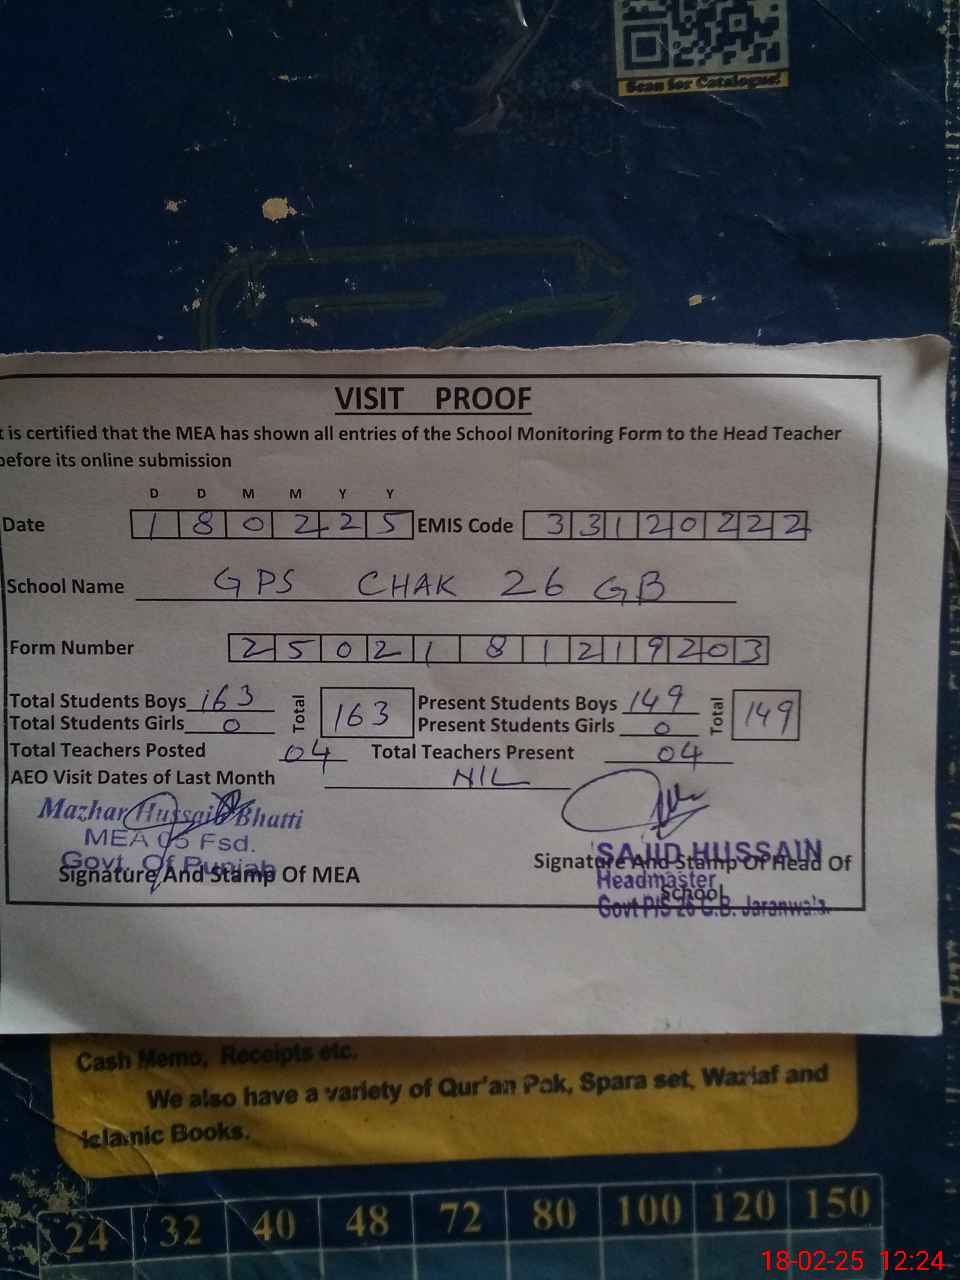 Scan for Catalogue!
VISIT PROOF
t is certified that the MEA has shown all entries of the School Monitoring Form to the Head Teacher
before its online submission
D D M M Y Y
Date 1 8 0 2 2 5 EMIS Code 3 3 1 2 0 2 2 2
School Name GPS CHAK 26 GB
Form Number 2 5 0 2 1 8 1 2 1 9 2 0 3
Total Students Boys 163 Total 163 Present Students Boys 149 Total 149
Total Students Girls 0 Present Students Girls 0
Total Teachers Posted 04 Total Teachers Present 04
AEO Visit Dates of Last Month NIL
Mazhar Hussain Bhatti
MEA 05 Fsd.
Govt. Of Punjab
Signature And Stamp Of MEA
SAJID HUSSAIN
Signature And Stamp Of Head Of
Headmaster
School
Govt P/S 26 G.B. Jaranwala
Cash Memo, Receipts etc.
We also have a variety of Qur'an Pak, Spara set, Waziaf and
Islamic Books.
24 32 40 48 72 80 100 120 150
18-02-25 12:24